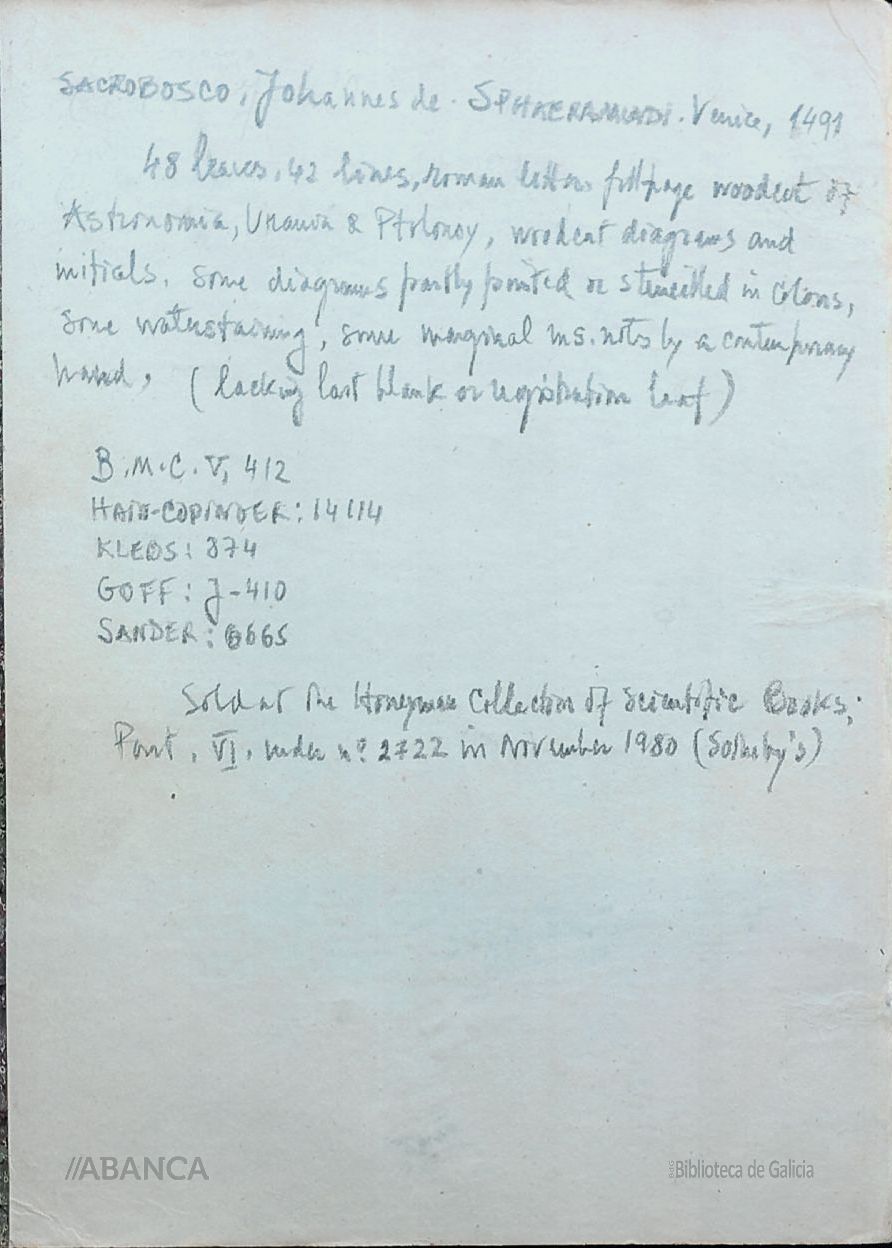 SACROBOSCO, Johannes de. SPHAERA MUNDI. Venice, 1491
48 leaves, 42 lines, roman letter. full page woodcut of
Astronomia, Urania & Ptolomy, woodcut diagrams and
initials. some diagrams partly printed or stencilled in colors,
some waterstaining, some marginal ms. notes by a contemporary
hand, (lacking last blank or registration leaf)
B.M.C. V, 412
HAIN-COPINGER: 14114
KLEBS: 874
GOFF: J-410
SANDER: 6665
Sold at the Honeyman Collection of Scientific Books;
Part. VI. under nº 2722 in November 1980 (Sotheby's)
//ABANCA
Biblioteca de Galicia